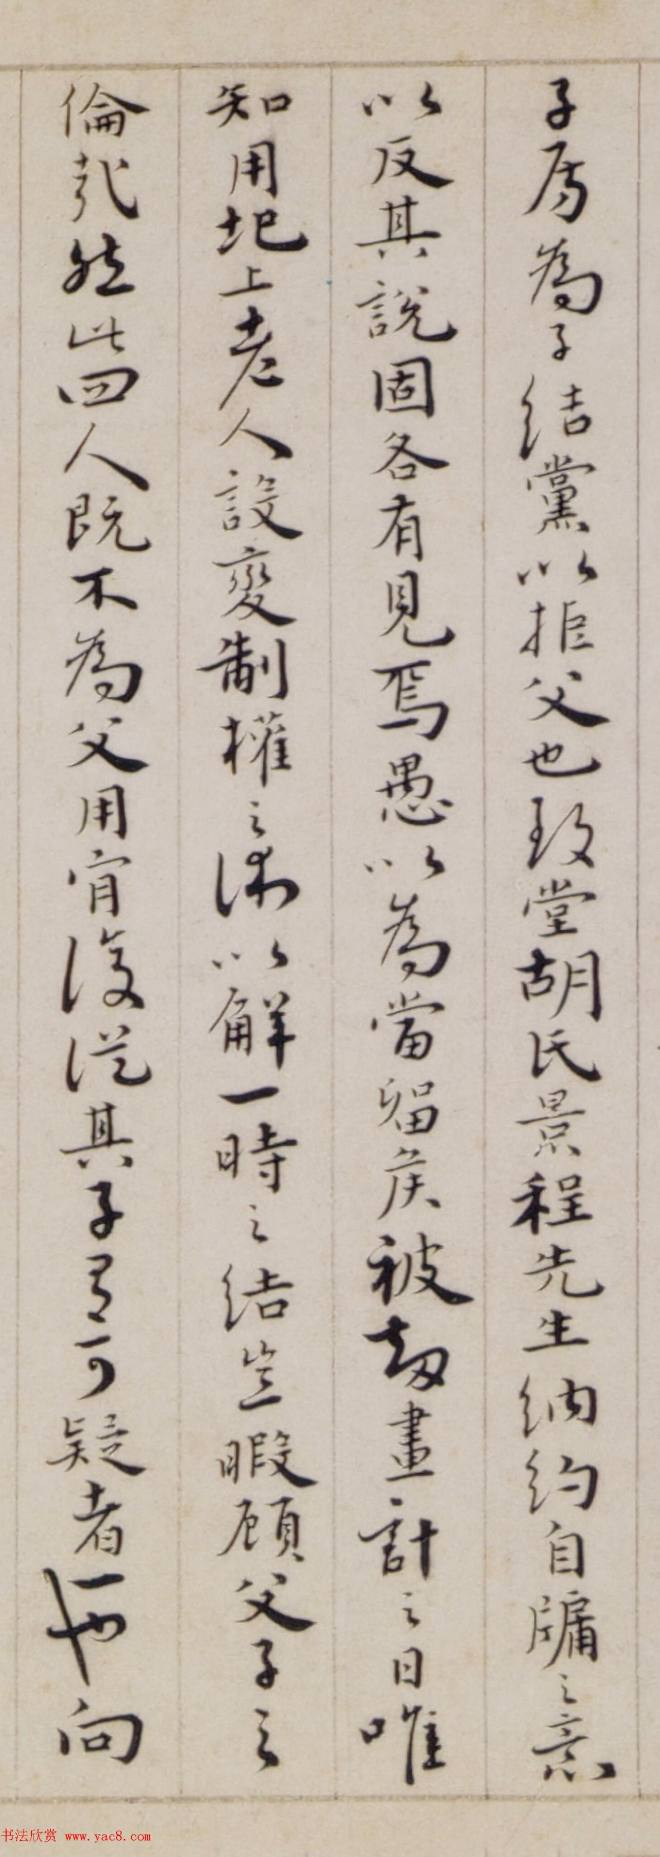 子房為子結黨以拒父也致堂胡氏景程先生納約自牖之意
以反其說固各有見焉愚以為當留侯被劫畫計之日唯
知用圯上老人設變制權之術以解一時之結豈暇顧父子之
倫哉然此四人既不為父用肯復從其子有可疑者一也向
书法欣赏 www.yac8.com